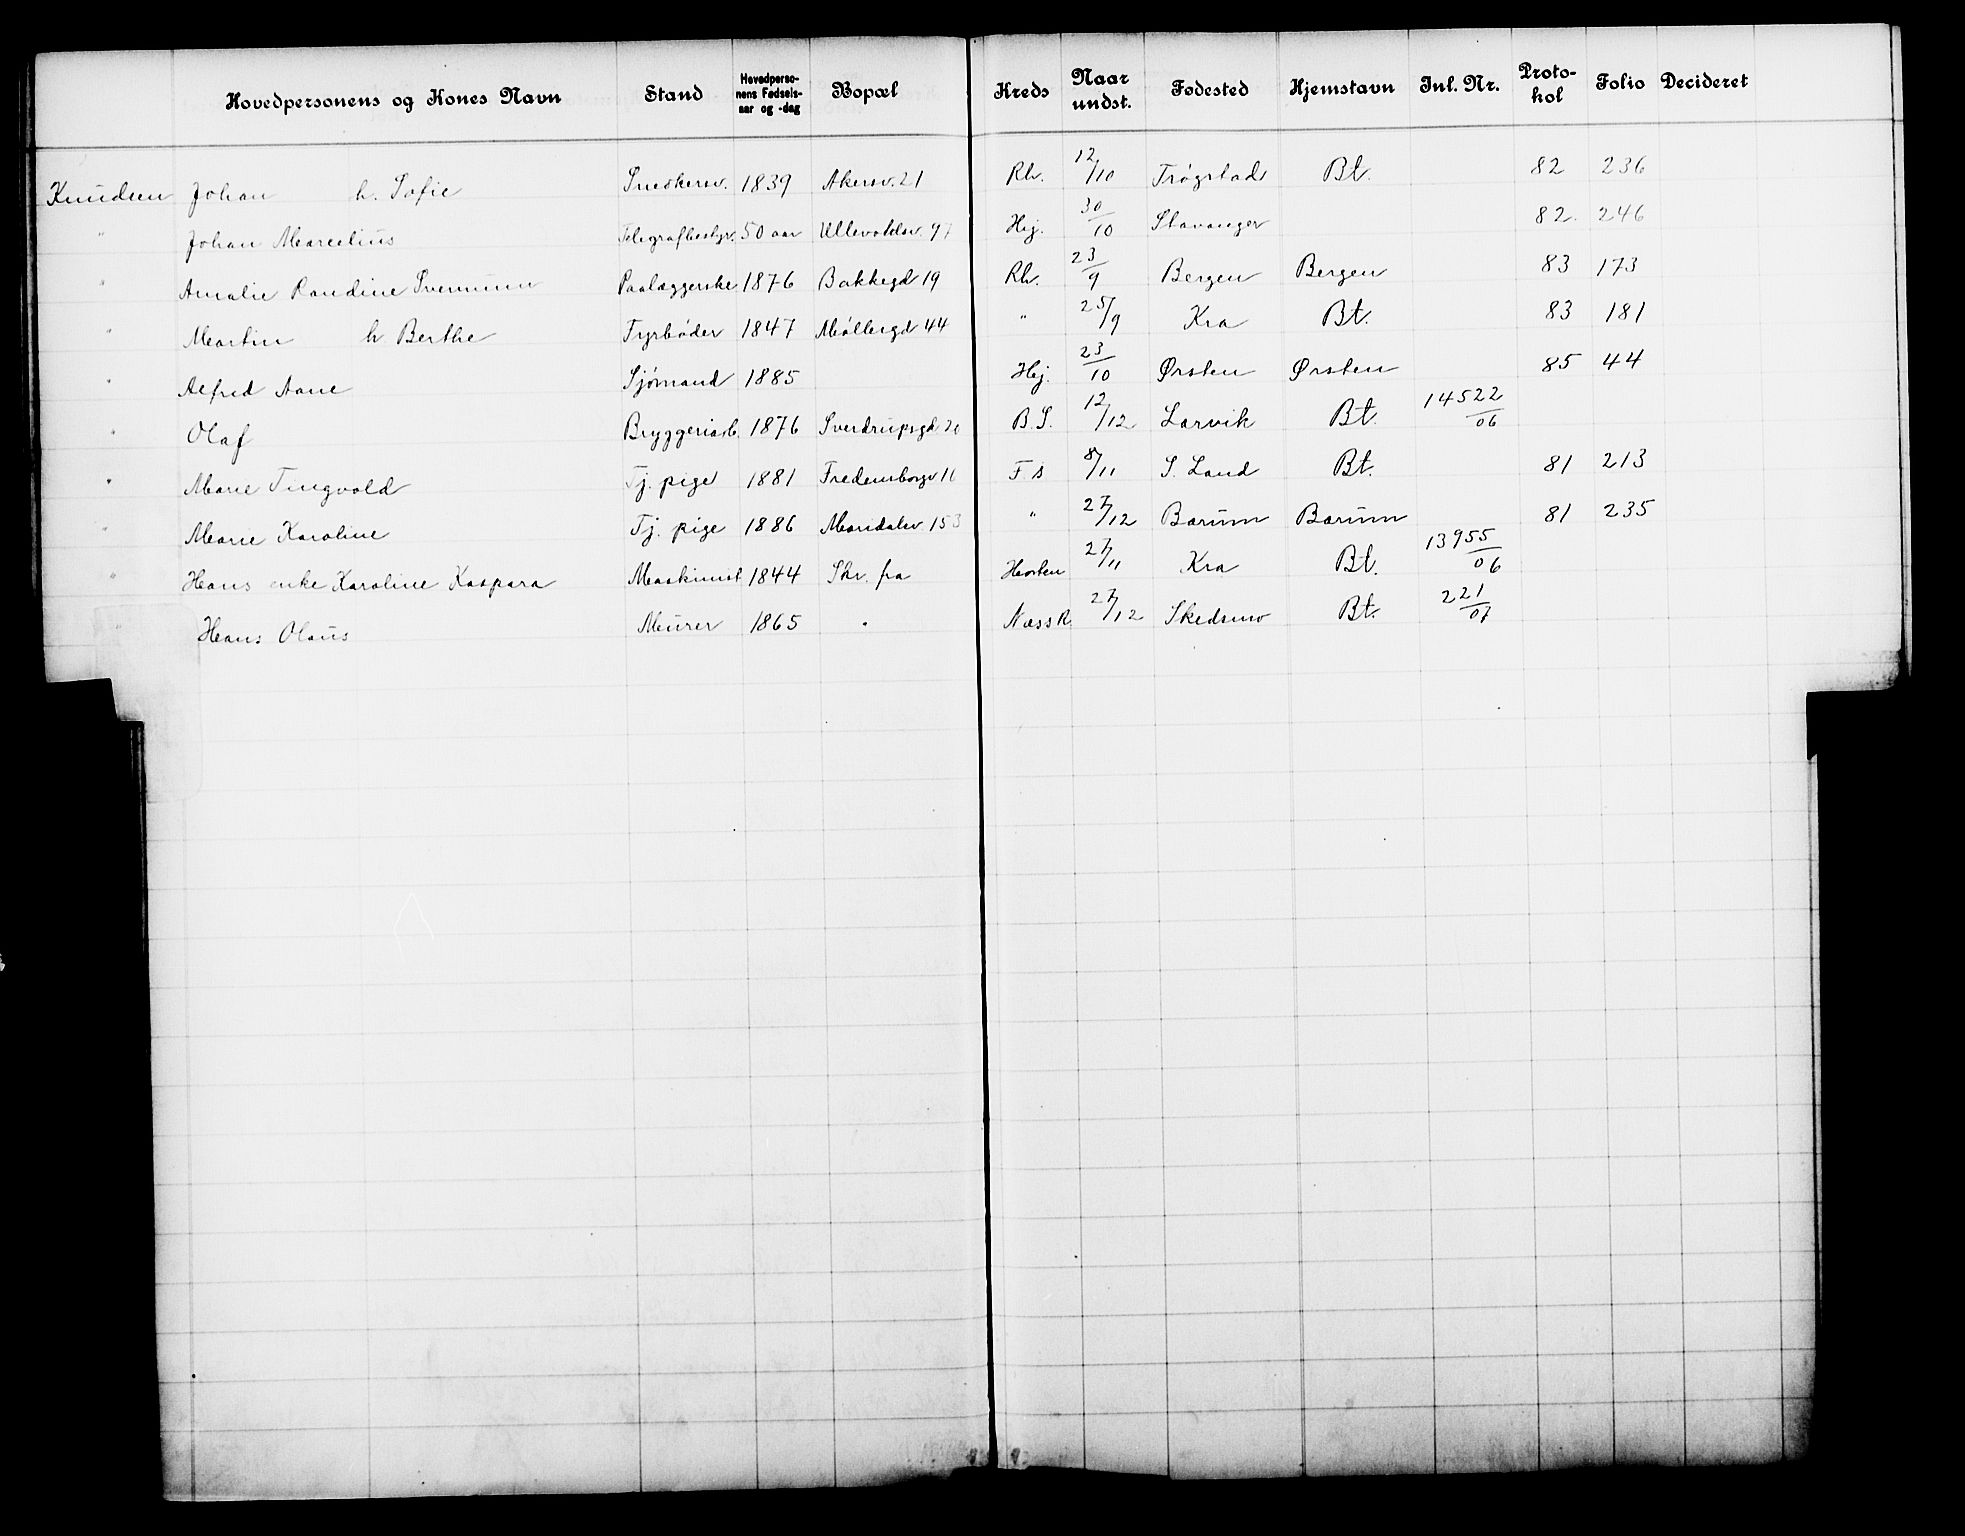 Hovedpersonens og Kones Navn Stand Hovedpersonens Fødsels-aar og -dag Bopæl Kreds Naar undst. Fødested Hjemstavn Inl. Nr. Protokol Folio Decideret
Knudsen Johan h. Sofie Snedkersv. 1839 Akersv. 21 Rh. 12/10 Trøgstad Bt. 82 236
" Johan Marcelius Telegrafbestyr. 50 aar Ullevoldsv. 97 Hej. 30/10 Stavanger 82. 246
" Amalie Randine Svennum Paalæggerske 1876 Bakkegd 19 Rh. 23/9 Bergen Bergen 83 173
" Martin h Berthe Fyrbøder 1847 Møllergd 44 " 25/9 Kra Bt. 83 181
" Alfred Aane Sjømand 1885 Hej. 23/10 Ørsten Ørsten 85 44
" Olaf Bryggeriarb. 1876 Sverdrupsgd B.S. 12/12 Larvik Bt. 14522/06
" Marie Tingvold Tj. pige 1881 Fredensborgv F s 8/11 S. Land Bt. 81 213
" Marie Karoline Tj. pige 1886 Maridalsv 153 " 27/12 Bærum Bærum 81 235
" Hans enke Karoline Kaspara Maskinist 1844 Skr. fra Horten 27/11 Kra Bt. 13955/06
" Hans Olaus Murer 1865 " Næss R. 27/12 Skedsmo Bt. 221/07